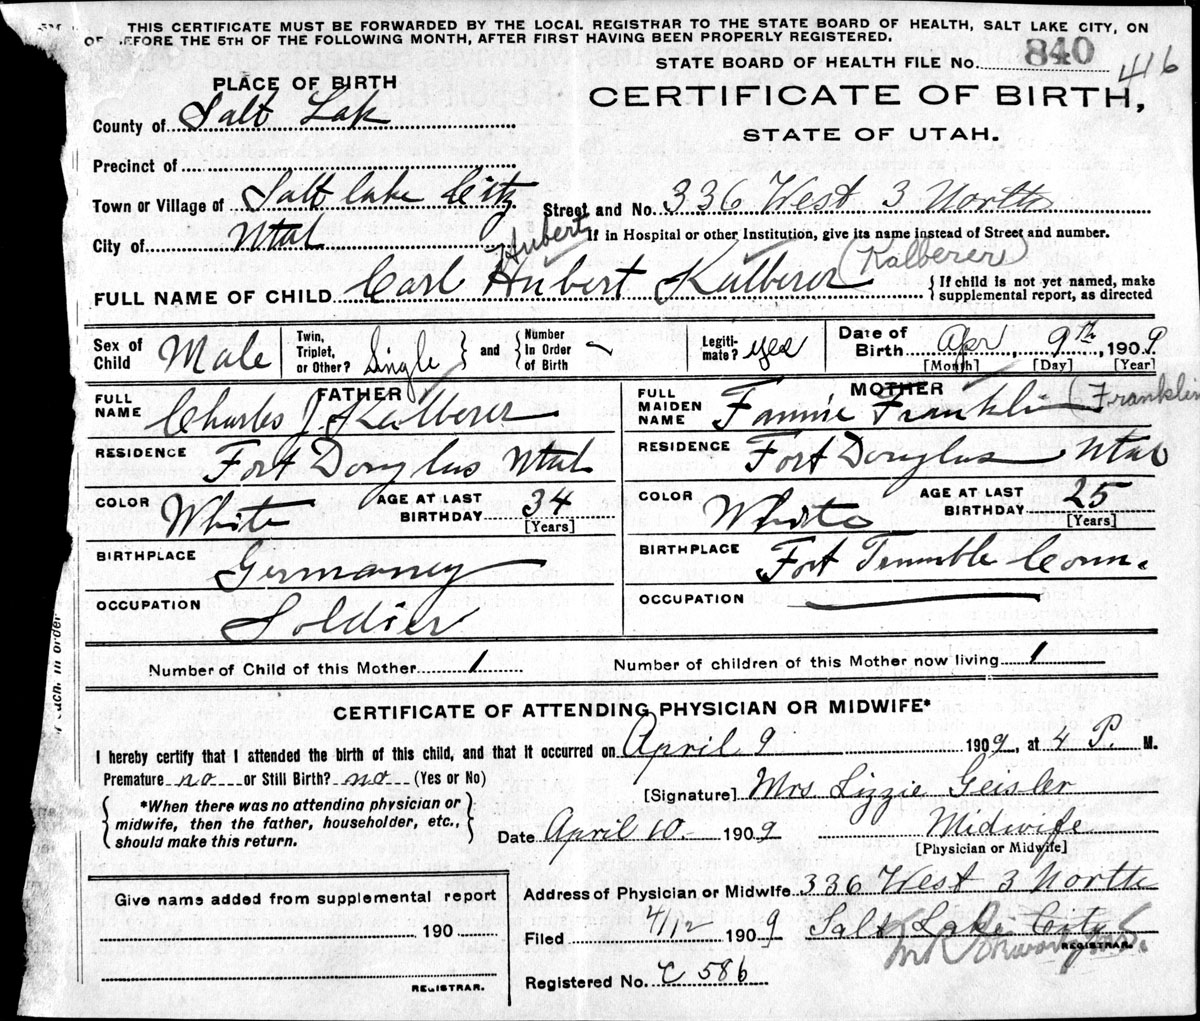 THIS CERTIFICATE MUST BE FORWARDED BY THE LOCAL REGISTRAR TO THE STATE BOARD OF HEALTH, SALT LAKE CITY, ON
OR BEFORE THE 5TH OF THE FOLLOWING MONTH, AFTER FIRST HAVING BEEN PROPERLY REGISTERED.
STATE BOARD OF HEALTH FILE No. 840 416
PLACE OF BIRTH
CERTIFICATE OF BIRTH,
County of Salt Lak
STATE OF UTAH.
Precinct of
Town or Village of Salt Lake City Street and No. 336 West 3 North
City of Utah If in Hospital or other Institution, give its name instead of Street and number.
Hubert (Kalberer)
FULL NAME OF CHILD Carl Hubert Kalberer { If child is not yet named, make
supplemental report, as directed
Sex of Child Male Twin, Triplet, or Other? Single } and { Number In Order of Birth Legiti-mate? yes Date of Birth Apr, 9th, 1909
[Month] [Day] [Year]
FATHER MOTHER
FULL NAME Charles J. Kalberer FULL MAIDEN NAME Fannie Franklin (Franklin
RESIDENCE Fort Douglas Utah RESIDENCE Fort Douglas Utah
COLOR White AGE AT LAST BIRTHDAY 34 [Years] COLOR White AGE AT LAST BIRTHDAY 25 [Years]
BIRTHPLACE Germaney BIRTHPLACE Fort Trumble Conn.
OCCUPATION Soldier OCCUPATION
Number of Child of this Mother 1 Number of children of this Mother now living 1
CERTIFICATE OF ATTENDING PHYSICIAN OR MIDWIFE*
I hereby certify that I attended the birth of this child, and that it occurred on April 9 1909, at 4 P. M.
Premature no or Still Birth? no (Yes or No)
[Signature] Mrs Lizzie Geisler
{ *When there was no attending physician or
midwife, then the father, householder, etc.,
should make this return. }
Date April 10 1909 Midwife
[Physician or Midwife]
Give name added from supplemental report
190
REGISTRAR.
Address of Physician or Midwife 336 West 3 North
Filed 4/12 1909 Salt Lake City
REGISTRAR.
Registered No. C 586
each, in order